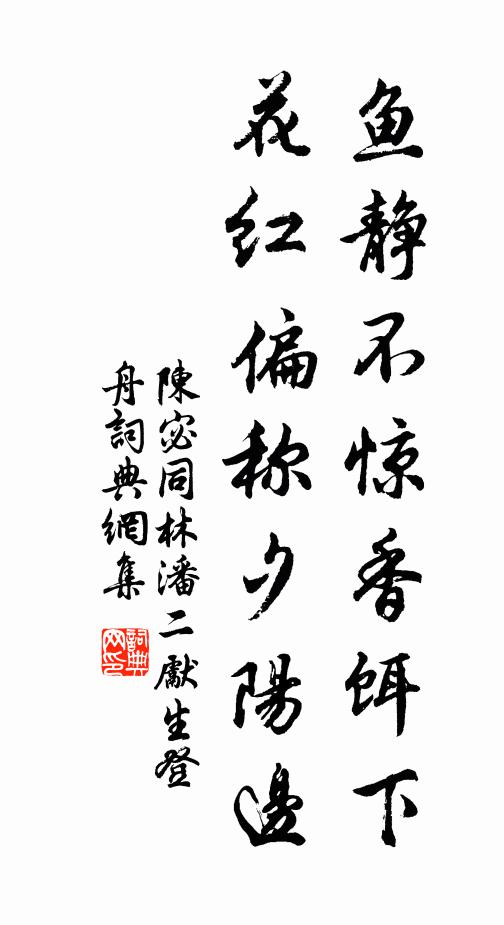 鱼静不惊香饵下
花红偏称夕陽邊
陳宓同林潘二獻生登
舟詞典網集
詞典
网印